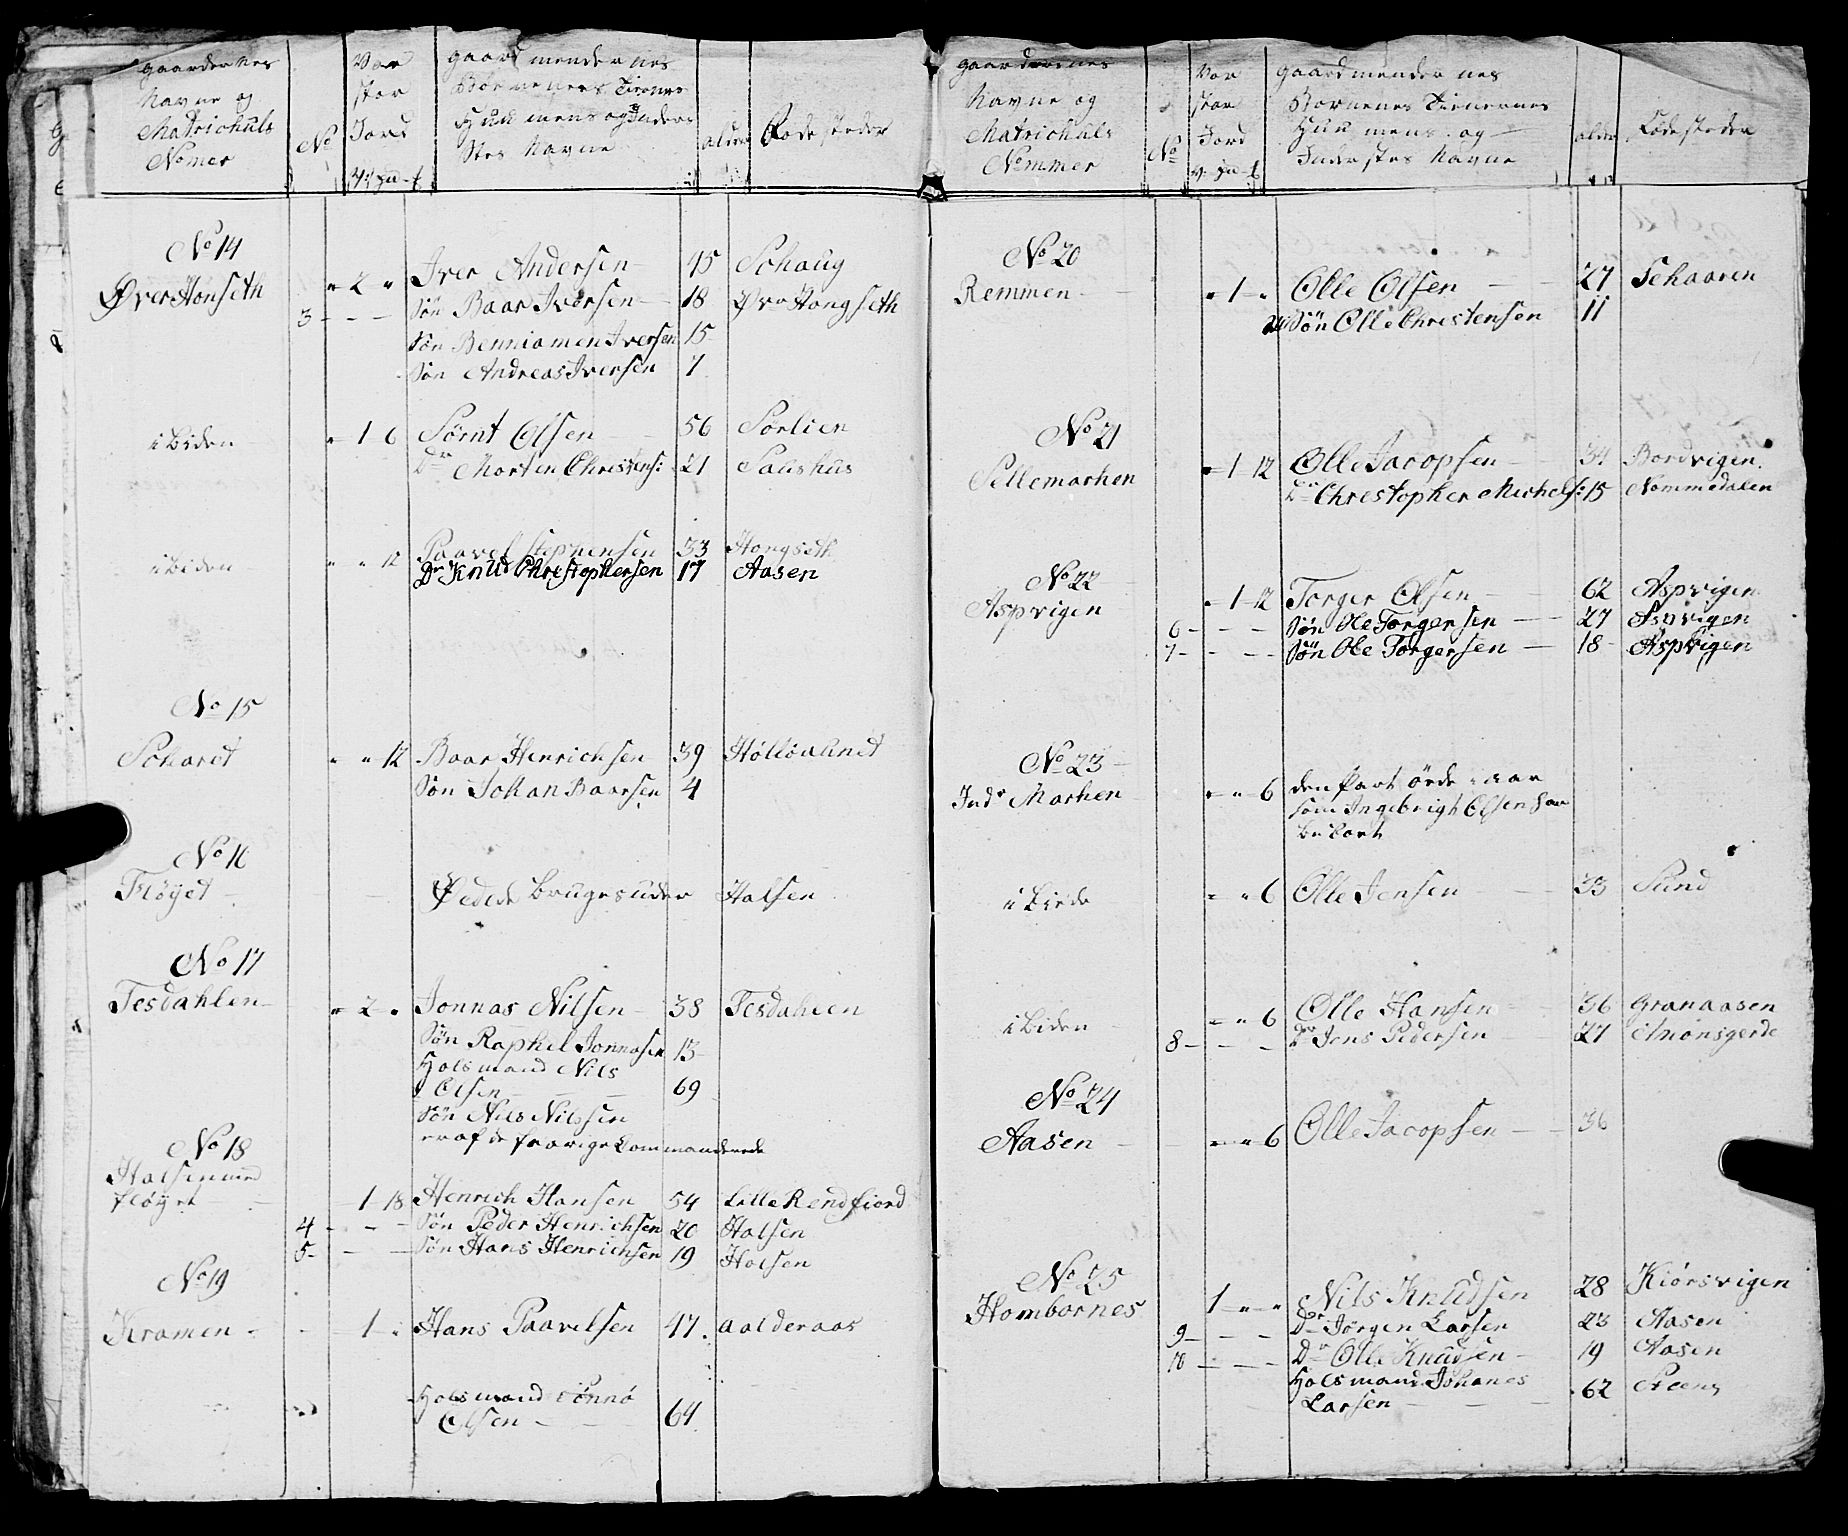 gaardernes
Navne og
Matrichuls
Nomer
No
Vor
stor
Jord
gaard mendernes
Børneners Tienes
Huusmens og Inder
stes Navne
alder
Fødesteder
No 14
Øver Honseth
" 2 "
Iver Andersen
45
Schaug
3 - - -
Søn Baar Iversen
18
Øvr Hongseth
Søn Benniamen Iversen
15
Søn Andreas Iversen
7
i biden
" 1 6
Sørnt Olsen
56
Sørlien
Dr Morten Christens:
21
Saushus
i biden
" " 12
Paavel Stephensen
33
Hongseth
Dr Knud Christophersen
17
Aasen
No 15
Schardt
" " 12
Baar Henrichsen
39
Søn Johan Baarsen
4
No 16
Fløyet
Ødede bruges under Halsen
No 17
Tesdahlen
" 2 "
Jonnas Nilsen
38
Tesdahlen
Søn Raphel Jonnasen
13
Holsmand Nils
Olsen
69
Søn Nils Nilssen
er af de forrige Commanderede
No 18
Halsen med
fløyet
1 18
Henrich Hansen
54
Lille Rendfiord
4 - - -
Søn Peder Henrichsen
20
Halsen
5 - - -
Søn Hans Henrichsen
19
Halsen
No 19
Kramen
1 "
Hans Paavelsen
47
Aalderaas
Holsmand Tønnø
Olsen
64
gaardernes
Navne og
Matrichuls
Nommer
No
Vor
stor
Jord
gaardmendernes
Børnenes Tienernes
Huusmens og
Inderstes Navne
alder
Fødesteder
No 20
Remmen
" 1 "
Olle Olsen
27
Schaaren
Søn Olle Christensen
11
No 21
Sellemarken
" 1 12
Olle Jacopsen
34
Bordvigen
Dr Christopher Michels:
15
Nommedalen
No 22
Aspvigen
" 1 12
Torger Olsen
62
Aspvigen
6 - - -
Søn Ole Torgersen
27
Aspvigen
7 - - -
Søn Ole Torgersen
18
Aspvigen
No 23
Indr Marken
" " 6
den Part øede er
som Ingebrigt Olsen har
beboet
i bide
" " 6
Olle Jensen
33
Sund
i biden
" " 6
Olle Hansen
36
Granaasen
8 - - -
Dr Jens Pedersen
27
No 24
Aasen
" " 6
Olle Jacopsen
36
No 25
Hombornes
1 " "
Nils Knudsen
28
Kiørsvigen
9 - - -
Dr Jørgen Larsen
23
Aasen
10 - - -
Dr Olle Knudsen
19
Aasen
Holsmand Johanes
Larsen
62